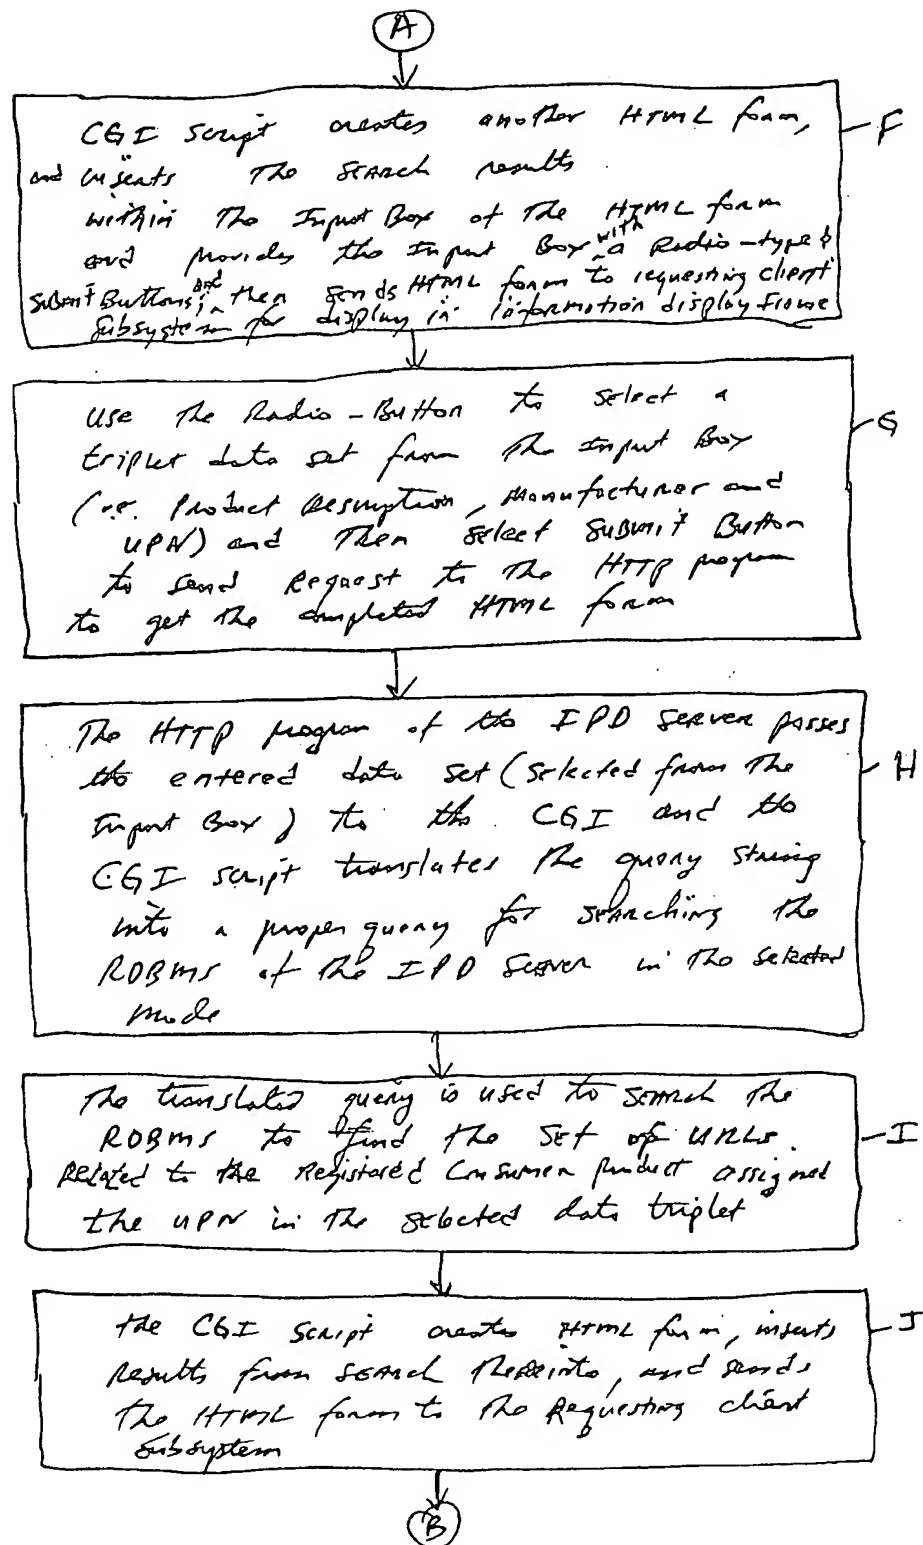 A
CGI script creates another HTML form, F
and inserts the search results
within the Input Box of the HTML form
and provides the Input Box with a Radio-type &
Submit Buttons; and then sends HTML form to requesting client
subsystem for display in information display frame
use the Radio-Button to select a G
triplet data set from the Input Box
(i.e. Product Description, Manufacturer and
UPN) and then select Submit Button
to send Request to the HTTP program
to get the completed HTML form
The HTTP program of the IPD Server passes
the entered data set (selected from the H
Input Box) to the CGI and the
CGI script translates the query string
into a proper query for searching the
RDBMS of the IPD Server in the selected
mode
The translated query is used to search the
RDBMS to find the set of URLs I
Related to the Registered Consumer product assigned
the UPN in the selected data triplet
the CGI Script creates HTML form, inserts J
Results from search thereinto, and sends
the HTML form to the Requesting client
subsystem
B